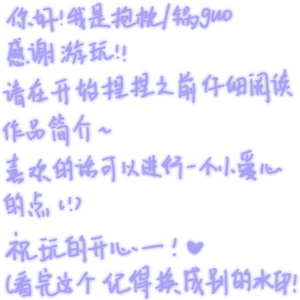 你好!我是抱枕/锅guo
感谢游玩!!
请在开始捏捏之前仔细阅读
作品简介~
喜欢的话可以进行一个小爱心
的点(!)
祝玩的开心·一!❤
(看完这个记得换成别的水印!